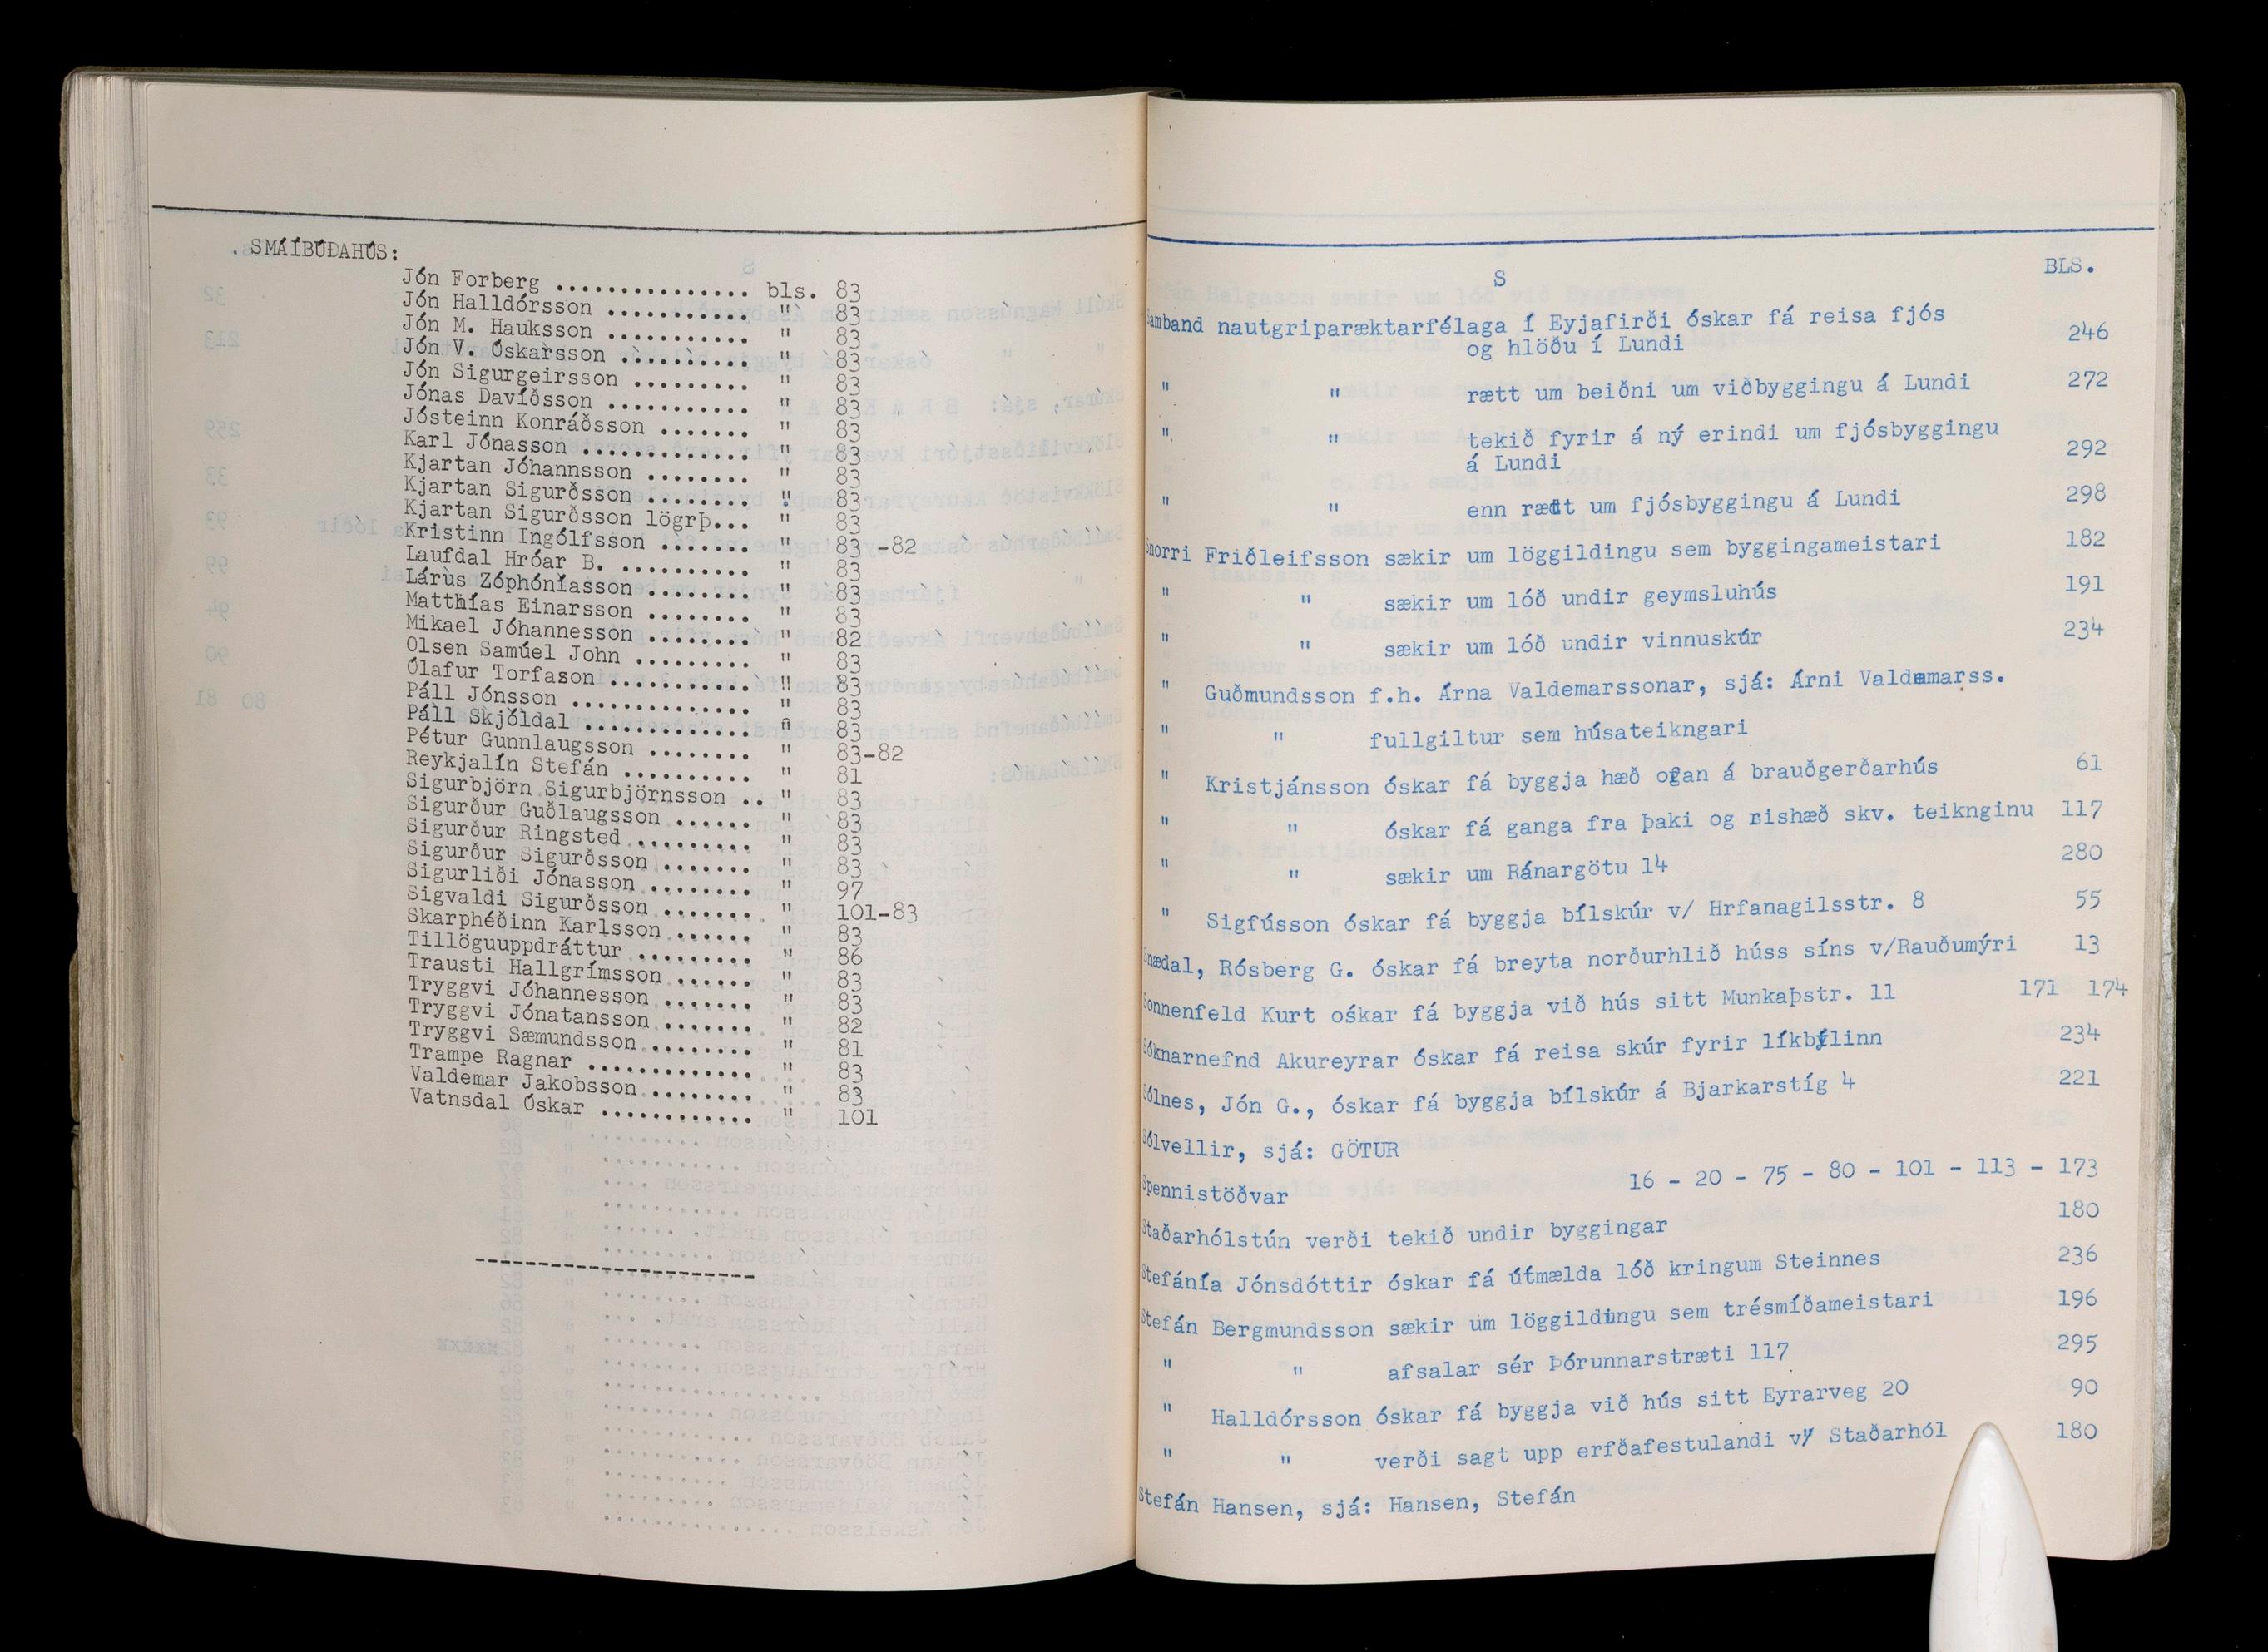 SMÁÍBÚÐAHÚS:
Jón Forberg ............... bls. 83
Jón Halldórsson ........... " 83
Jón M. Hauksson ........... " 83
Jón V. Óskarsson .......... " 83
Jón Sigurgeirsson ......... " 83
Jónas Davíðsson ........... " 83
Jósteinn Konráðsson ....... " 83
Karl Jónasson ............. " 83
Kjartan Jóhannsson ........ " 83
Kjartan Sigurðsson ........ " 83
Kjartan Sigurðsson lögrþ... " 83
Kristinn Ingólfsson ....... " 83 -82
Laufdal Hróar B. .......... " 83
Lárus Zóphóníasson ........ " 83
Matthías Einarsson ........ " 83
Mikael Jóhannesson ........ " 82
Olsen Samúel John ......... " 83
Ólafur Torfason ........... " 83
Páll Jónsson .............. " 83
Páll Skjóldal ............. " 83
Pétur Gunnlaugsson ........ " 83-82
Reykjalín Stefán .......... " 81
Sigurbjörn Sigurbjörnsson .. " 83
Sigurður Guðlaugsson ...... " 83
Sigurður Ringsted ......... " 83
Sigurður Sigurðsson ....... " 83
Sigurliði Jónasson ........ " 97
Sigvaldi Sigurðsson ....... " 101-83
Skarphéðinn Karlsson ...... " 83
Tillöguuppdráttur ......... " 86
Trausti Hallgrímsson ...... " 83
Tryggvi Jóhannesson ....... " 83
Tryggvi Jónatansson ....... " 82
Tryggvi Sæmundsson ........ " 81
Trampe Ragnar ............. " 83
Valdemar Jakobsson ........ " 83
Vatnsdal Óskar ............ " 101
-----------------------
S BLS.
Samband nautgriparæktarfélaga í Eyjafirði óskar fá reisa fjós
og hlöðu í Lundi 246
" " rætt um beiðni um viðbyggingu á Lundi 272
" " tekið fyrir á ný erindi um fjósbyggingu
á Lundi 292
" " enn rætt um fjósbyggingu á Lundi 298
Snorri Friðleifsson sækir um löggildingu sem byggingameistari 182
" " sækir um lóð undir geymsluhús 191
" " sækir um lóð undir vinnuskúr 234
" Guðmundsson f.h. Árna Valdemarssonar, sjá: Árni Valdemarss.
" " fullgiltur sem húsateikngari
" Kristjánsson óskar fá byggja hæð ofan á brauðgerðarhús 61
" " óskar fá ganga fra þaki og rishæð skv. teiknginu 117
" " sækir um Ránargötu 14 280
" Sigfússon óskar fá byggja bílskúr v/ Hrfanagilsstr. 8 55
Snædal, Rósberg G. óskar fá breyta norðurhlið húss síns v/Rauðumýri 13
Sonnenfeld Kurt oskar fá byggja við hús sitt Munkaþstr. 11 171 174
Sóknarnefnd Akureyrar óskar fá reisa skúr fyrir líkbílinn 234
Sólnes, Jón G., óskar fá byggja bílskúr á Bjarkarstíg 4 221
Sólvellir, sjá: GÖTUR
Spennistöðvar 16 - 20 - 75 - 80 - 101 - 113 - 173
Staðarhólstún verði tekið undir byggingar 180
Stefánía Jónsdóttir óskar fá útmælda lóð kringum Steinnes 236
Stefán Bergmundsson sækir um löggildingu sem trésmíðameistari 196
" " afsalar sér Þórunnarstræti 117 295
" Halldórsson óskar fá byggja við hús sitt Eyrarveg 20 90
" " verði sagt upp erfðafestulandi v/ Staðarhól 180
Stefán Hansen, sjá: Hansen, Stefán